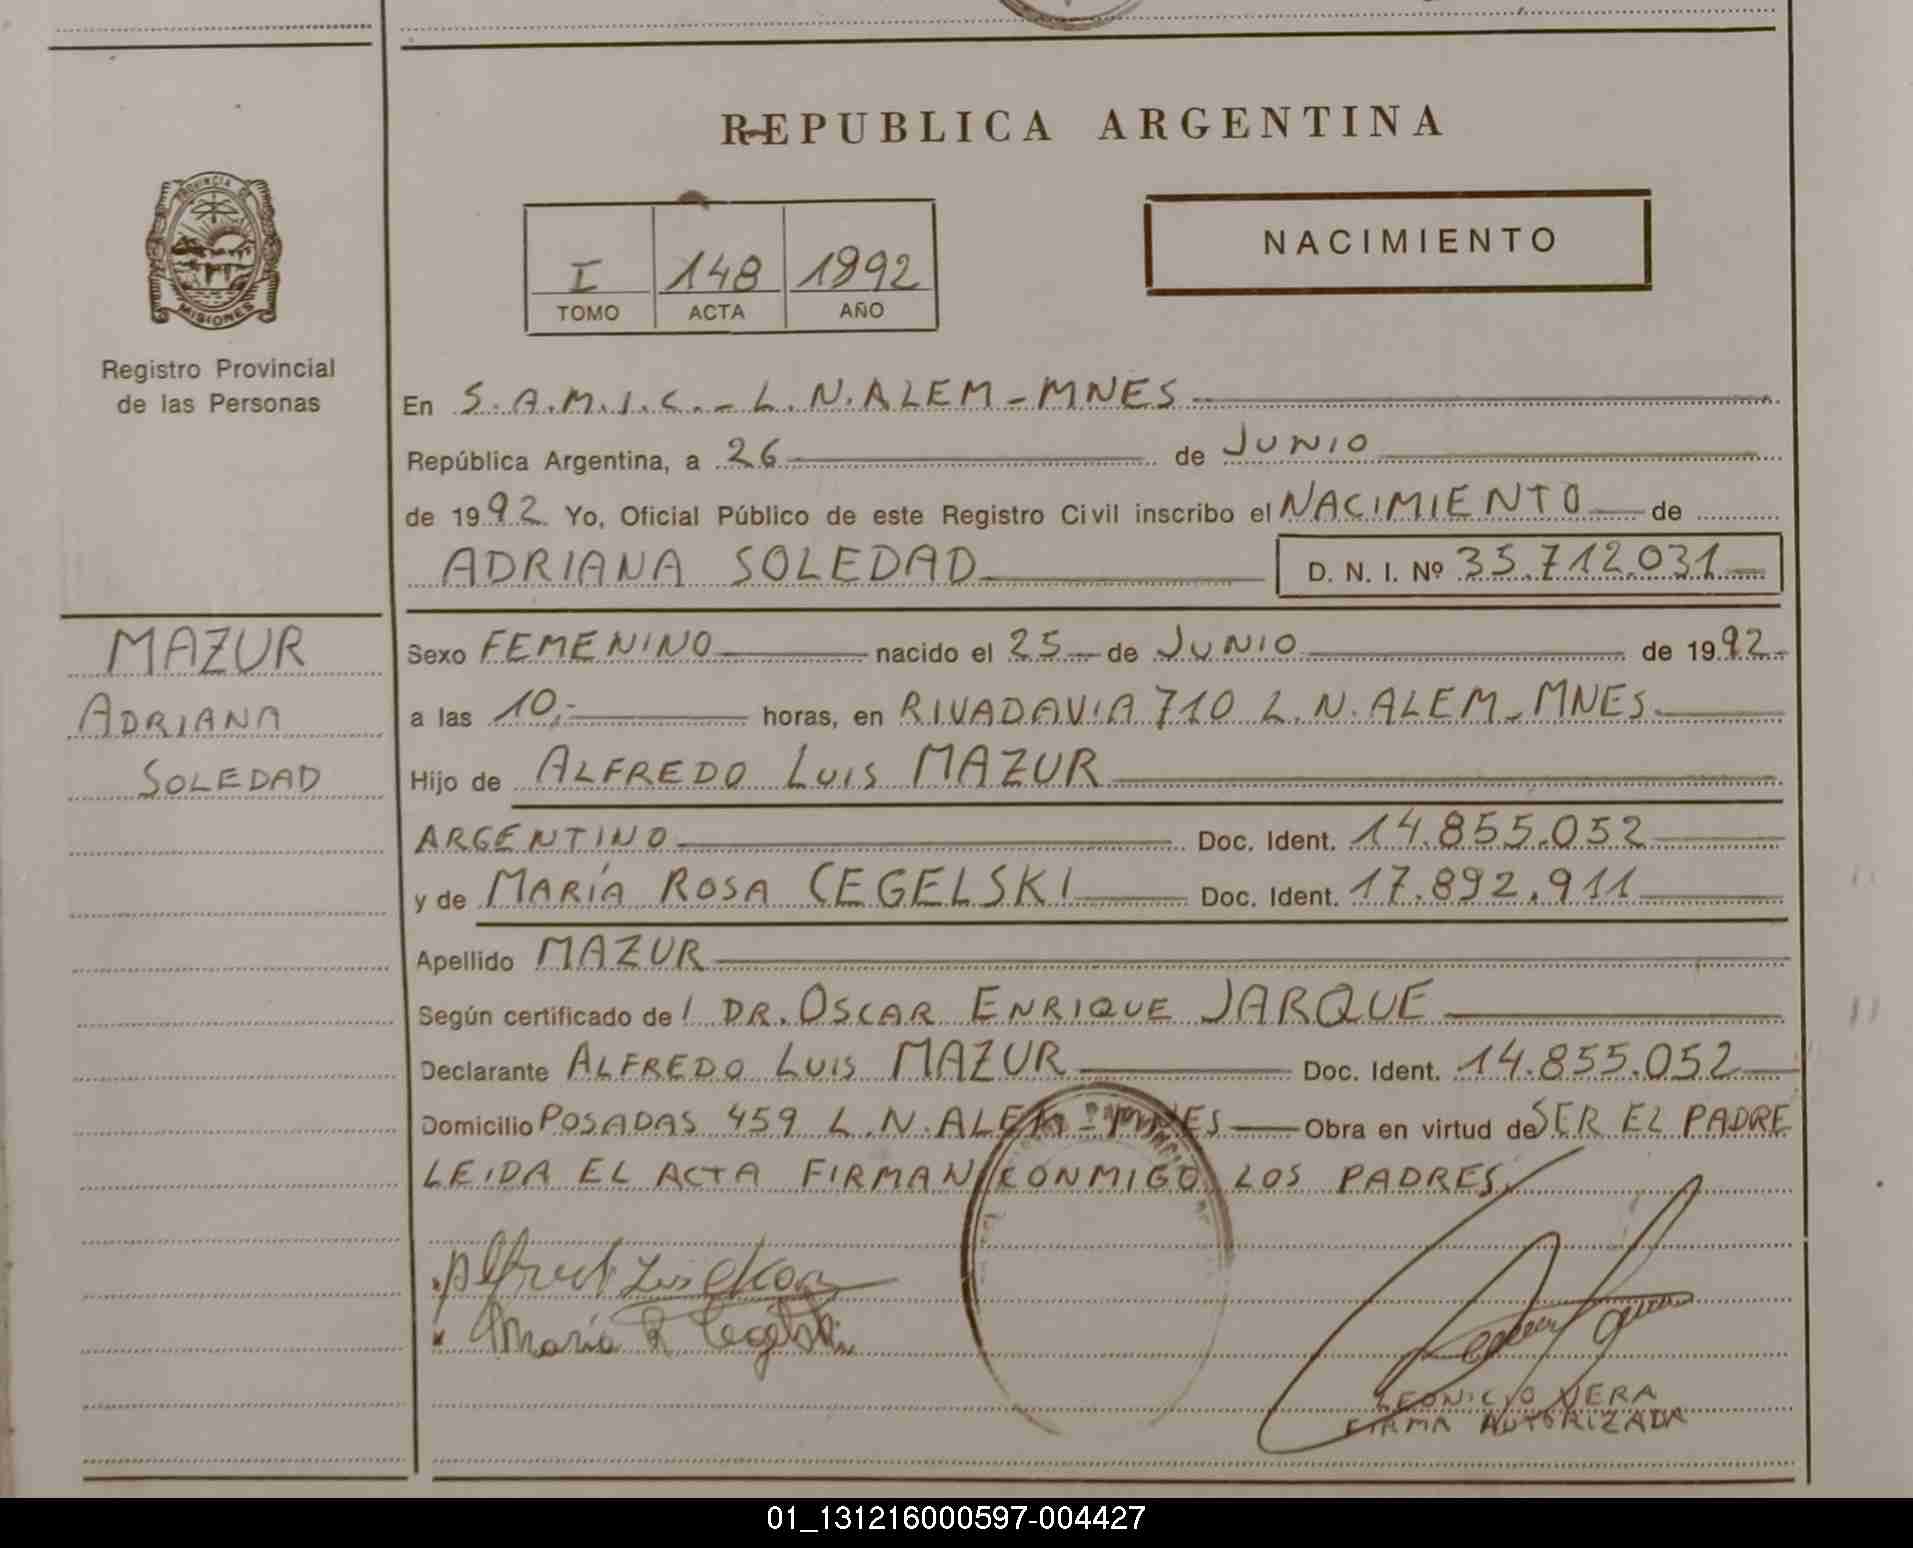 REPUBLICA ARGENTINA
PROVINCIA DE
MISIONES
Registro Provincial
de las Personas
I 148 1992
TOMO ACTA AÑO
NACIMIENTO
En S.A.M.I.C. - L.N.ALEM - MNES
República Argentina, a 26 de JUNIO
de 1992 Yo, Oficial Público de este Registro Civil inscribo el NACIMIENTO de
ADRIANA SOLEDAD D. N. I. Nº 35.712.031
MAZUR
ADRIANA
SOLEDAD
Sexo FEMENINO nacido el 25 de JUNIO de 1992
a las 10,- horas, en RIVADAVIA 710 L.N.ALEM-MNES
Hijo de ALFREDO LUIS MAZUR
ARGENTINO Doc. Ident. 14.855.052
y de MARÍA ROSA CEGELSKI Doc. Ident. 17.892.911
Apellido MAZUR
Según certificado de l DR. OSCAR ENRIQUE JARQUE
Declarante ALFREDO LUIS MAZUR Doc. Ident. 14.855.052
Domicilio POSADAS 459 L.N.ALEM - MNES Obra en virtud de SER EL PADRE
LEIDA EL ACTA FIRMAN CONMIGO LOS PADRES.
Maria R Cegelski
LEONICIO VERA
FIRMA AUTORIZADA
01_131216000597-004427